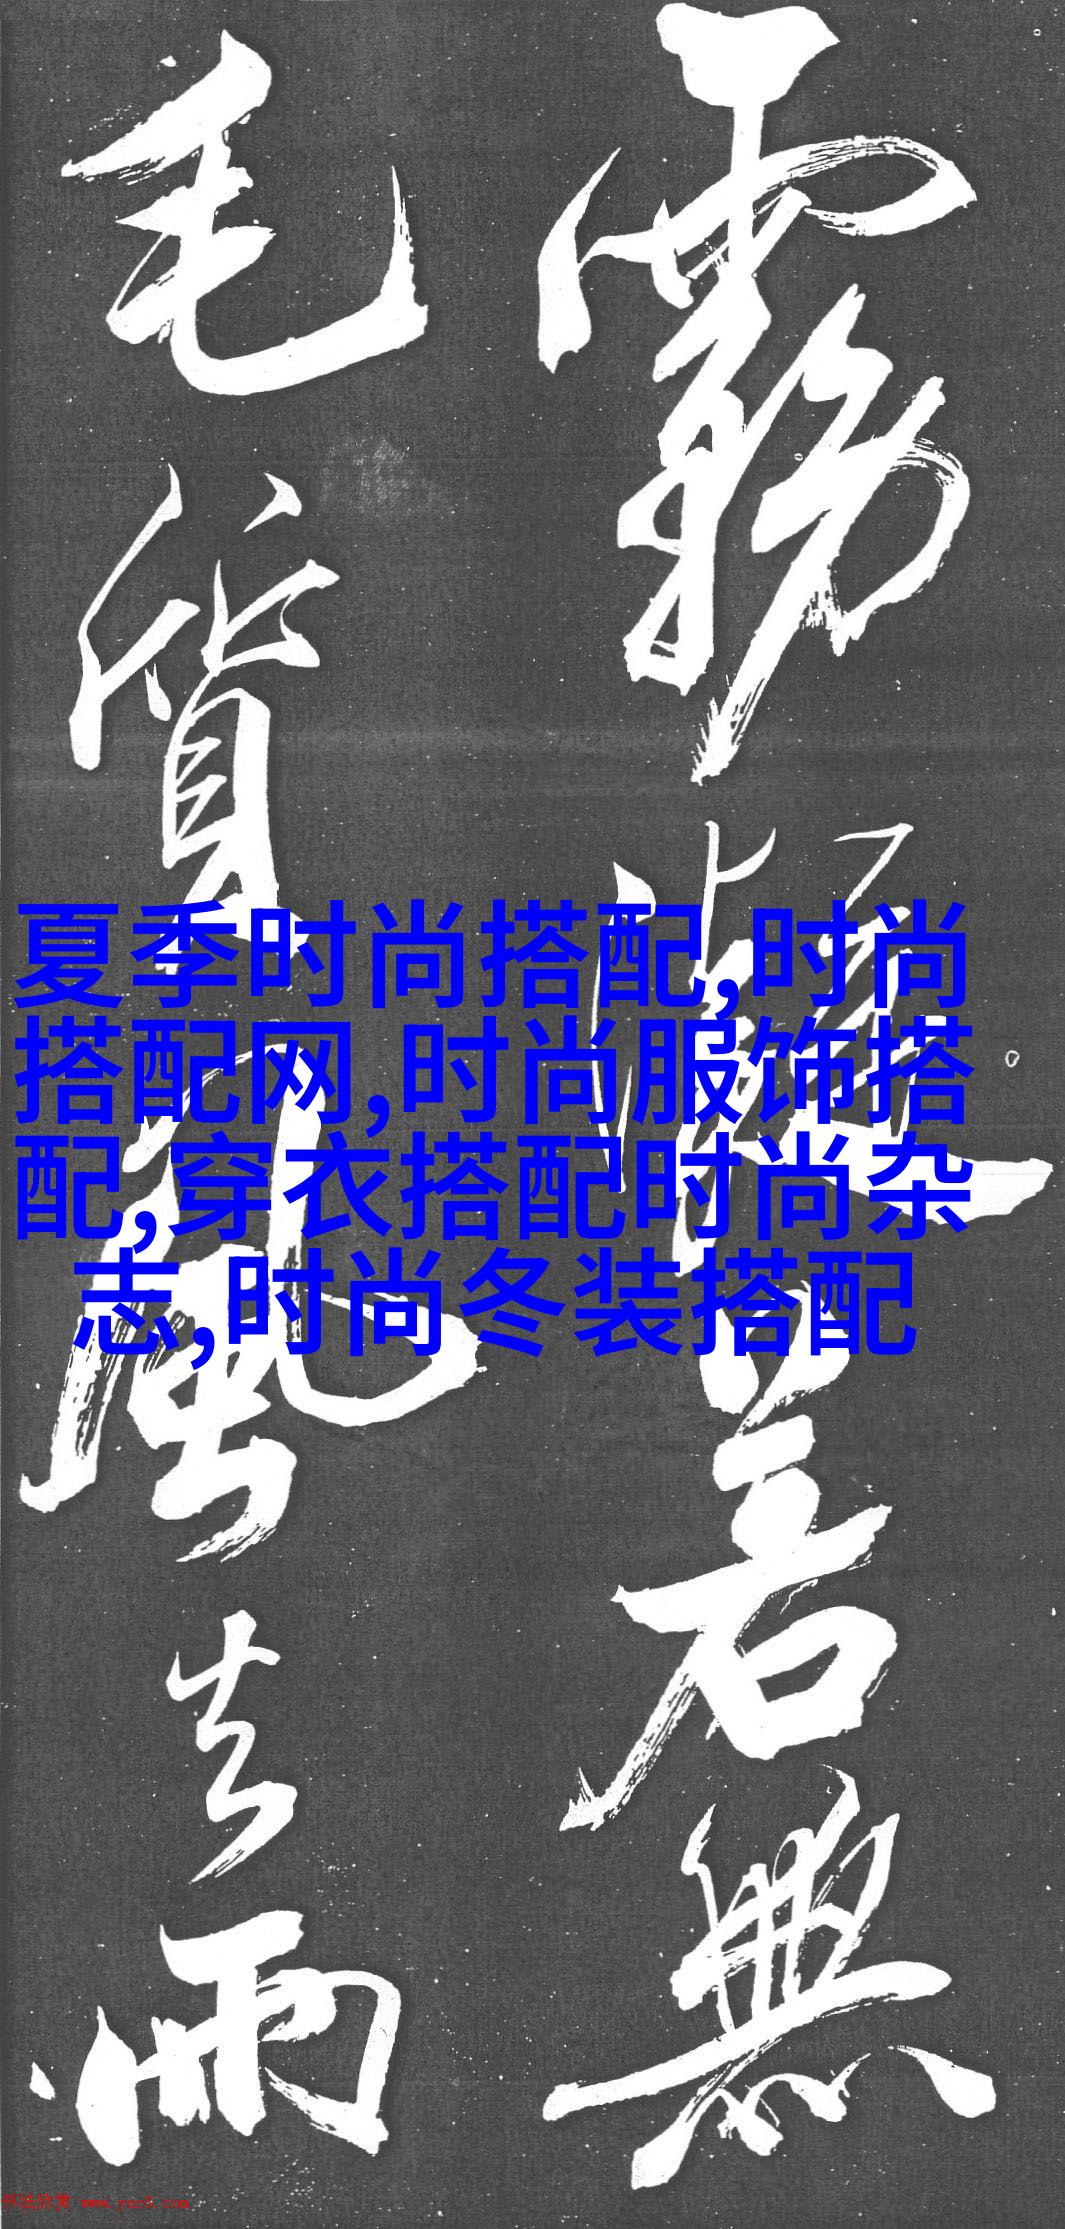 霧凝若無
毛質風去雨
夏季时尚搭配,时尚
搭配网,时尚服饰搭
配,穿衣搭配时尚杂
志,时尚冬装搭配
书法欣赏 www.yac8.com